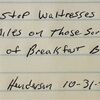 Stop Waitresses
iles on Those Sor
of Breakfast B
Henderson 10-31-